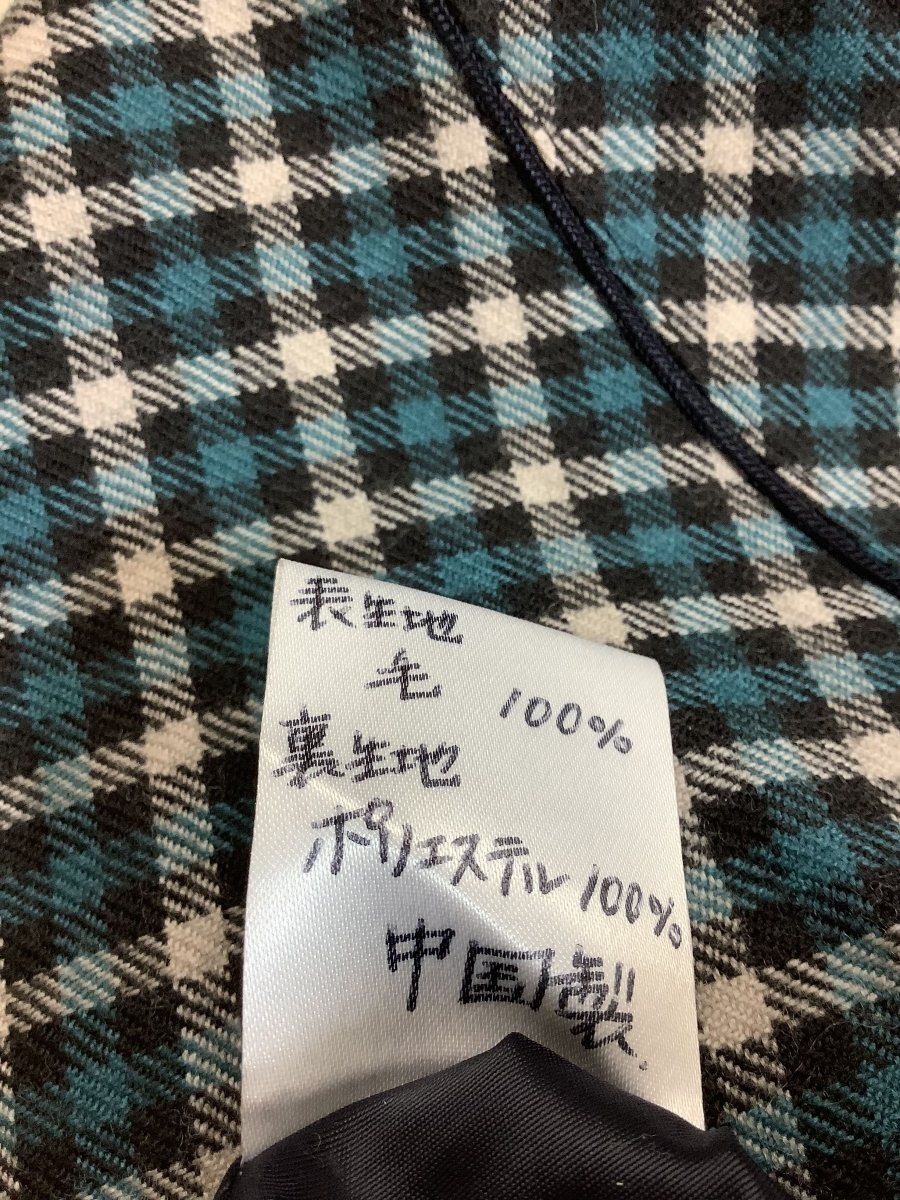 表生地
毛 100%
裏生地
ポリエステル 100%
中国製.